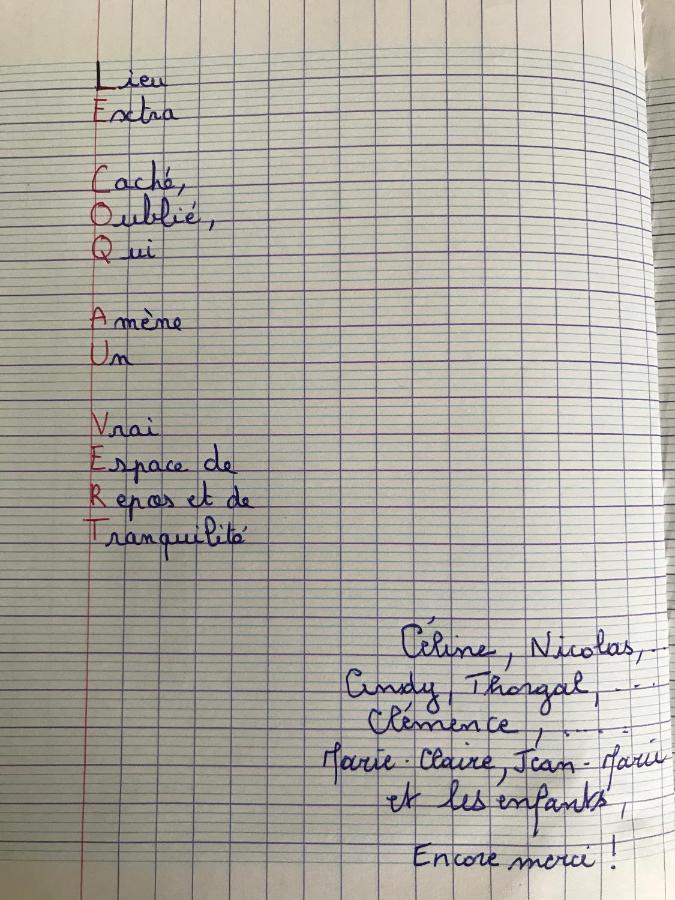 Lieu
Extra
Caché,
Oublié,
Qui
Amène
Un
Vrai
Espace de
Repos et de
Tranquilité
Céline, Nicolas, ..
Cindy, Thorgal, ....
Clémence, ......
Marie-Claire, Jean-Marie
et les enfants,
Encore merci !